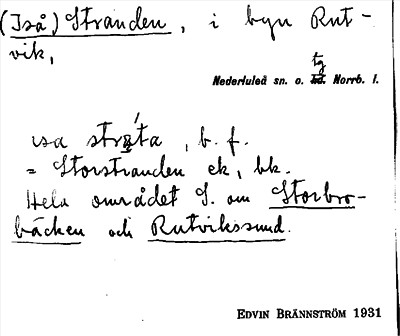 (Iså) Stranden, i byn Rut-
vik,
tg
Nederluleå sn. o. hd. Norrb. l.
ısa stráta, b. f.
= Storstranden ek, bk.
Hela området S. om Storbro-
bäcken och Rutvikssund.
EDVIN BRÄNNSTRÖM 1931